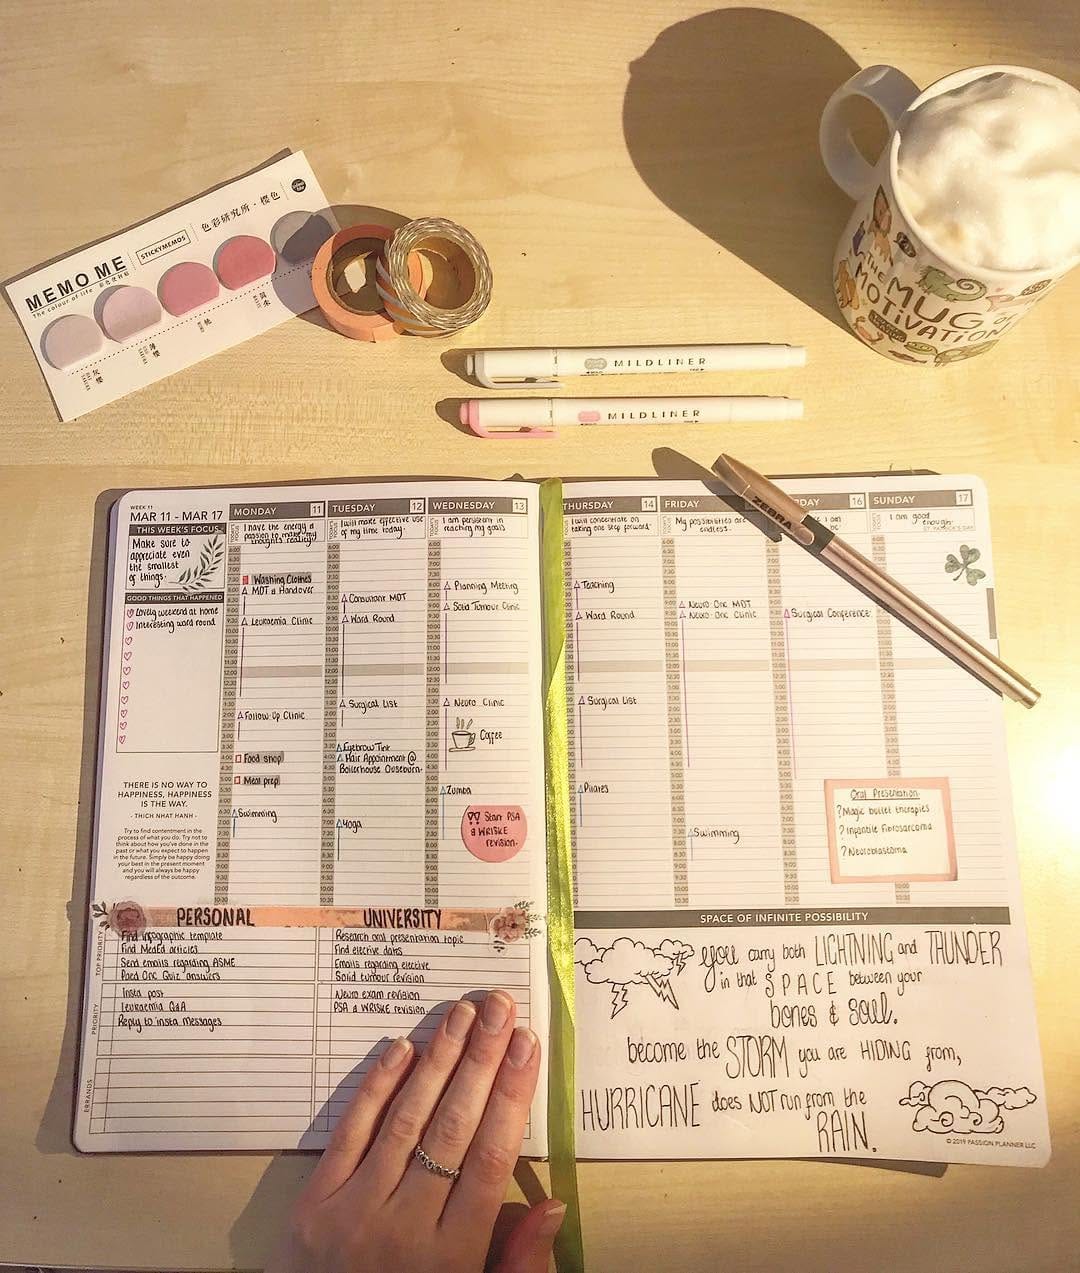 MEMO ME
The colour of life
STICKYMEMOS
色彩研究所・櫻色
MILDLINER
MILDLINER
THE
MUG of
MOTIVATION
ZEBRA
WEEK 11
MAR 11 - MAR 17
THIS WEEK'S FOCUS
Make sure to
appreciate even
the smallest
of things.
GOOD THINGS THAT HAPPENED
Lovely weekend at home
Interesting ward round
THERE IS NO WAY TO
HAPPINESS, HAPPINESS
IS THE WAY.
- THICH NHAT HANH -
Try to find contentment in the
process of what you do. Try not to
think about how you've done in the
past or what you expect to happen
in the future. Simply be happy doing
your best in the present moment
and you will always be happy
regardless of the outcome.
MONDAY 11
I have the energy &
passion to make my
thoughts reality!
Washing Clothes
MDT & Handover
Leukaemia Clinic
Follow-Up Clinic
Food shop
Meal prep
Swimming
TUESDAY 12
I will make effective use
of my time today.
Consultant MDT
Ward Round
Surgical List
Eyebrow Tint
Hair Appointment @
Boilerhouse Ouseburn.
Yoga
WEDNESDAY 13
I am persistent in
reaching my goals
Planning Meeting
Solid Tumour Clinic
Neuro Clinic
Coffee
Zumba
Start PSA
& WRISKE
revision.
THURSDAY 14
I will concentrate on
taking one step forward
Teaching
Ward Round
Surgical List
Pilates
FRIDAY
My possibilities are
endless.
Neuro-Onc MDT
Neuro-Onc Clinic
Swimming
16
Surgical Conference
SUNDAY 17
I am good
enough.
ST. PATRICK'S DAY
Oral Presentation
? Magic bullet therapies
? Infantile Fibrosarcoma
? Neuroblastoma
PERSONAL UNIVERSITY
TOP PRIORITY
Find infographic template
Find MedEd articles
Send emails regarding ASME
Paed Onc Quiz answers
Research oral presentation topic
Find elective dates
Emails regarding elective
Solid tumour revision
PRIORITY
Insta post
Leukaemia Q&A
Reply to insta messages
Neuro exam revision
PSA & WRISKE revision.
ERRANDS
SPACE OF INFINITE POSSIBILITY
you carry both LIGHTNING and THUNDER
in that SPACE between your
bones & soul.
become the STORM you are HIDING from,
HURRICANE does NOT run from the
RAIN.
© 2019 PASSION PLANNER LLC